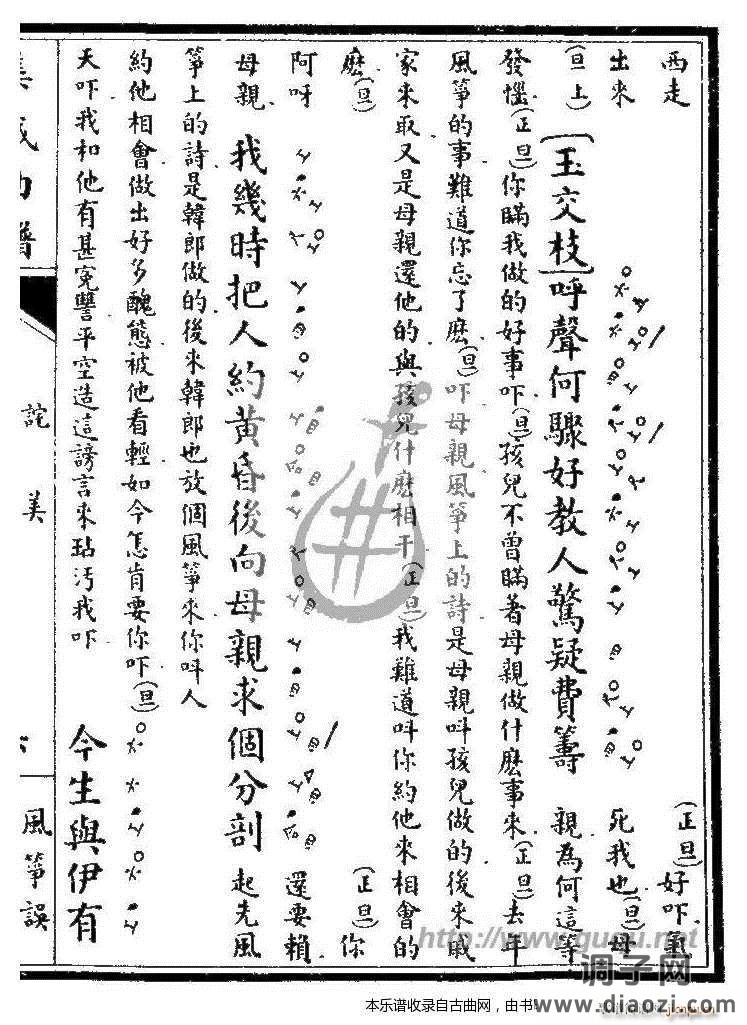 西走
（正旦）好吓氣
出來
死我也（旦）母
（旦上）【玉交枝】呼聲何驟好教人驚疑費籌
親為何這等
發惱（正旦）你瞞我做的好事吓（旦）孩兒不曾瞞著母親做什麽事來（正旦）去年
風箏的事難道你忘了麽（旦）吓母親風箏上的詩是母親叫孩兒做的後來戚
家來取又是母親還他的與孩兒什麽相干（正旦）我難道叫你約他來相會的
麽（旦）
（正旦）你
阿呀
還要賴
母親
我幾時把人約黃昏後向母親求個分剖
起先風
箏上的詩是韓郎做的後來韓郎也放個風箏來你叫人
約他相會做出好多醜態被他看輕如今怎肯要你吓（旦）
天吓我和他有甚寃讐平空造這謗言來玷污我吓
今生與伊有
集成曲譜
詫美
風箏誤
http://www.guqu.net
调子网
www.diaozi.com
本乐谱收录自古曲网，由书